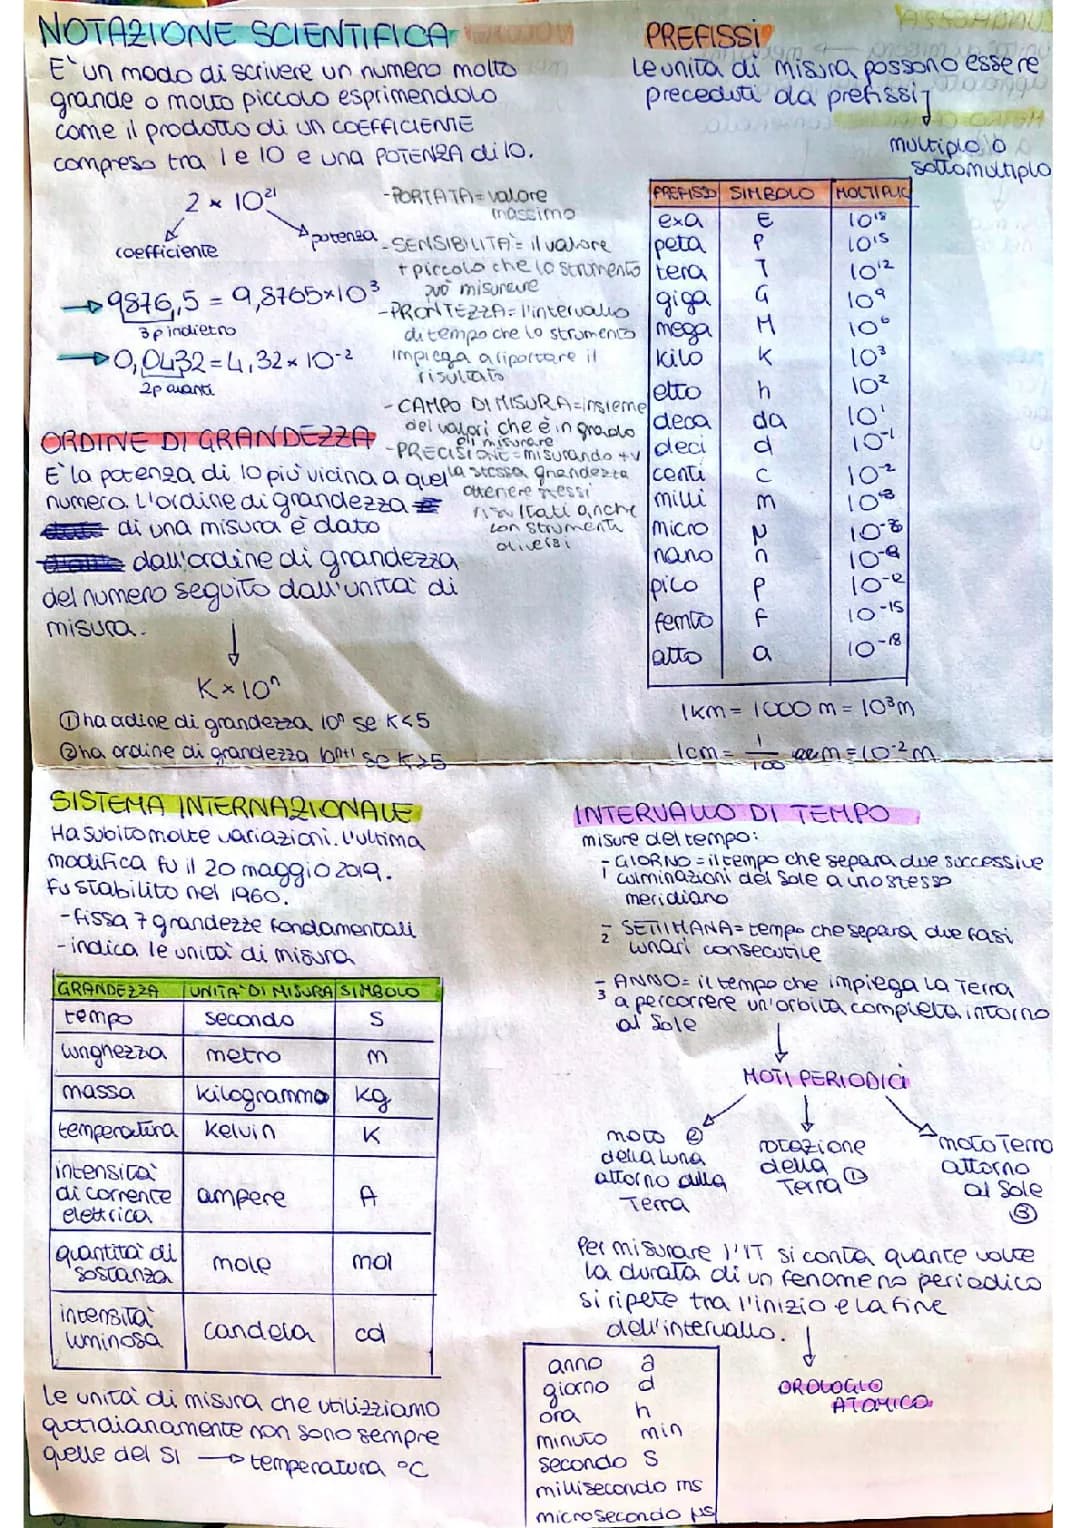 NOTAZIONE SCIENTIFICA
E' un modo di scrivere un numero molto
grande o molto piccolo esprimendolo
come il prodotto di un COEFFICIENTE
compreso tra 1 e 10 e una POTENZA di 10.
2 × 10²¹
coefficiente
potenza
9876,5 = 9,8765×10³
3p indietro
0,0432=4,32× 10⁻²
2p avanti
-PORTATA= valore
massimo
-SENSIBILITÀ= il valore
+ piccolo che lo strumento
può misurare
-PRONTEZZA= l'intervallo
di tempo che lo strumento
impiega a riportare il
risultato
-CAMPO DI MISURA=insieme
dei valori che è in grado
di misurare
-PRECISIONE=misurando +v
la stessa grandezza
ottenere stessi
risultati anche
con strumenti
diversi
ORDINE DI GRANDEZZA
E' la potenza di 10 più vicina a quel
numero. L'ordine di grandezza
di una misura è dato
dall'ordine di grandezza
del numero seguito dall'unità di
misura.
K×10ⁿ
① ha ordine di grandezza 10ⁿ se K<5
② ha ordine di grandezza 10ⁿ⁺¹ se K≥5
PREFISSI
Le unità di misura possono essere
preceduti da prefissi
multiplo o
sottomultiplo
PREFISSO SIMBOLO MOLTIPLIC
exa E 10¹⁸
peta P 10¹⁵
tera T 10¹²
giga G 10⁹
mega M 10⁶
kilo K 10³
etto h 10²
deca da 10¹
deci d 10⁻¹
centi c 10⁻²
milli m
micro μ
nano n 10⁻⁹
pico p
femto f 10⁻¹⁵
atto a 10⁻¹⁸
1km= 1000 m = 10³m
1cm= 1/100 m=10⁻²m
SISTEMA INTERNAZIONALE
Ha subito molte variazioni. L'ultima
modifica fu il 20 maggio 2019.
Fu stabilito nel 1960.
-fissa 7 grandezze fondamentali
-indica le unità di misura
GRANDEZZA UNITA' DI MISURA SIMBOLO
tempo secondo s
lunghezza metro m
massa kilogrammo kg
temperatura kelvin K
intensità
di corrente ampere A
elettrica
quantità di
sostanza mole mol
intensità
luminosa candela cd
Le unità di misura che utilizziamo
quotidianamente non sono sempre
quelle del SI → temperatura °C
INTERVALLO DI TEMPO
misure del tempo:
- GIORNO = il tempo che separa due successive
1 culminazioni del Sole a uno stesso
meridiano
- SETTIMANA= tempo che separa due fasi
2 lunari consecutive
- ANNO= il tempo che impiega la Terra
3 a percorrere un'orbita completa intorno
al Sole
MOTI PERIODICI
moto ②
della luna
attorno alla
Terra
rotazione
della
Terra ①
moto Terra
attorno
al Sole
③
Per misurare l'IT si conta quante volte
la durata di un fenomeno periodico
si ripete tra l'inizio e la fine
dell'intervallo.
OROLOGIO
ATOMICO
anno a
giorno d
ora h
minuto min
secondo s
millisecondo ms
microsecondo μs